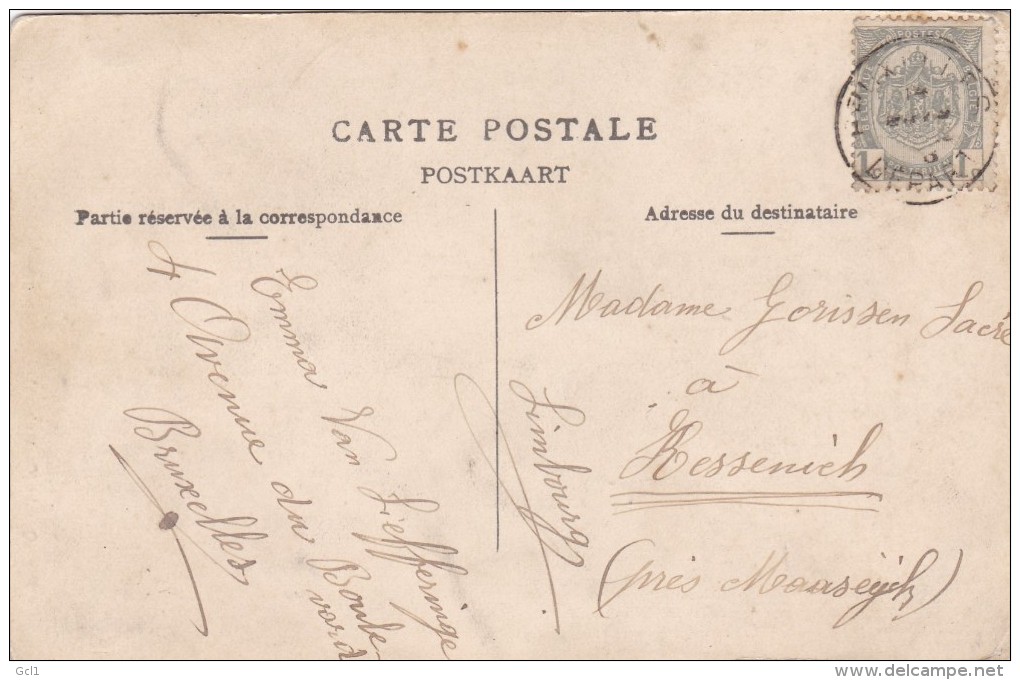 CARTE POSTALE
POSTKAART
Partie réservée à la correspondance
Adresse du destinataire
POSTES
1
1c
DEPART
Emma Van Liefferinge
4 Avenue du Boule
vard
Bruxelles
Madame Gorissen Sacré
à
Kessenich
(près Maaseijk)
Limbourg
Gcl1
www.delcampe.net